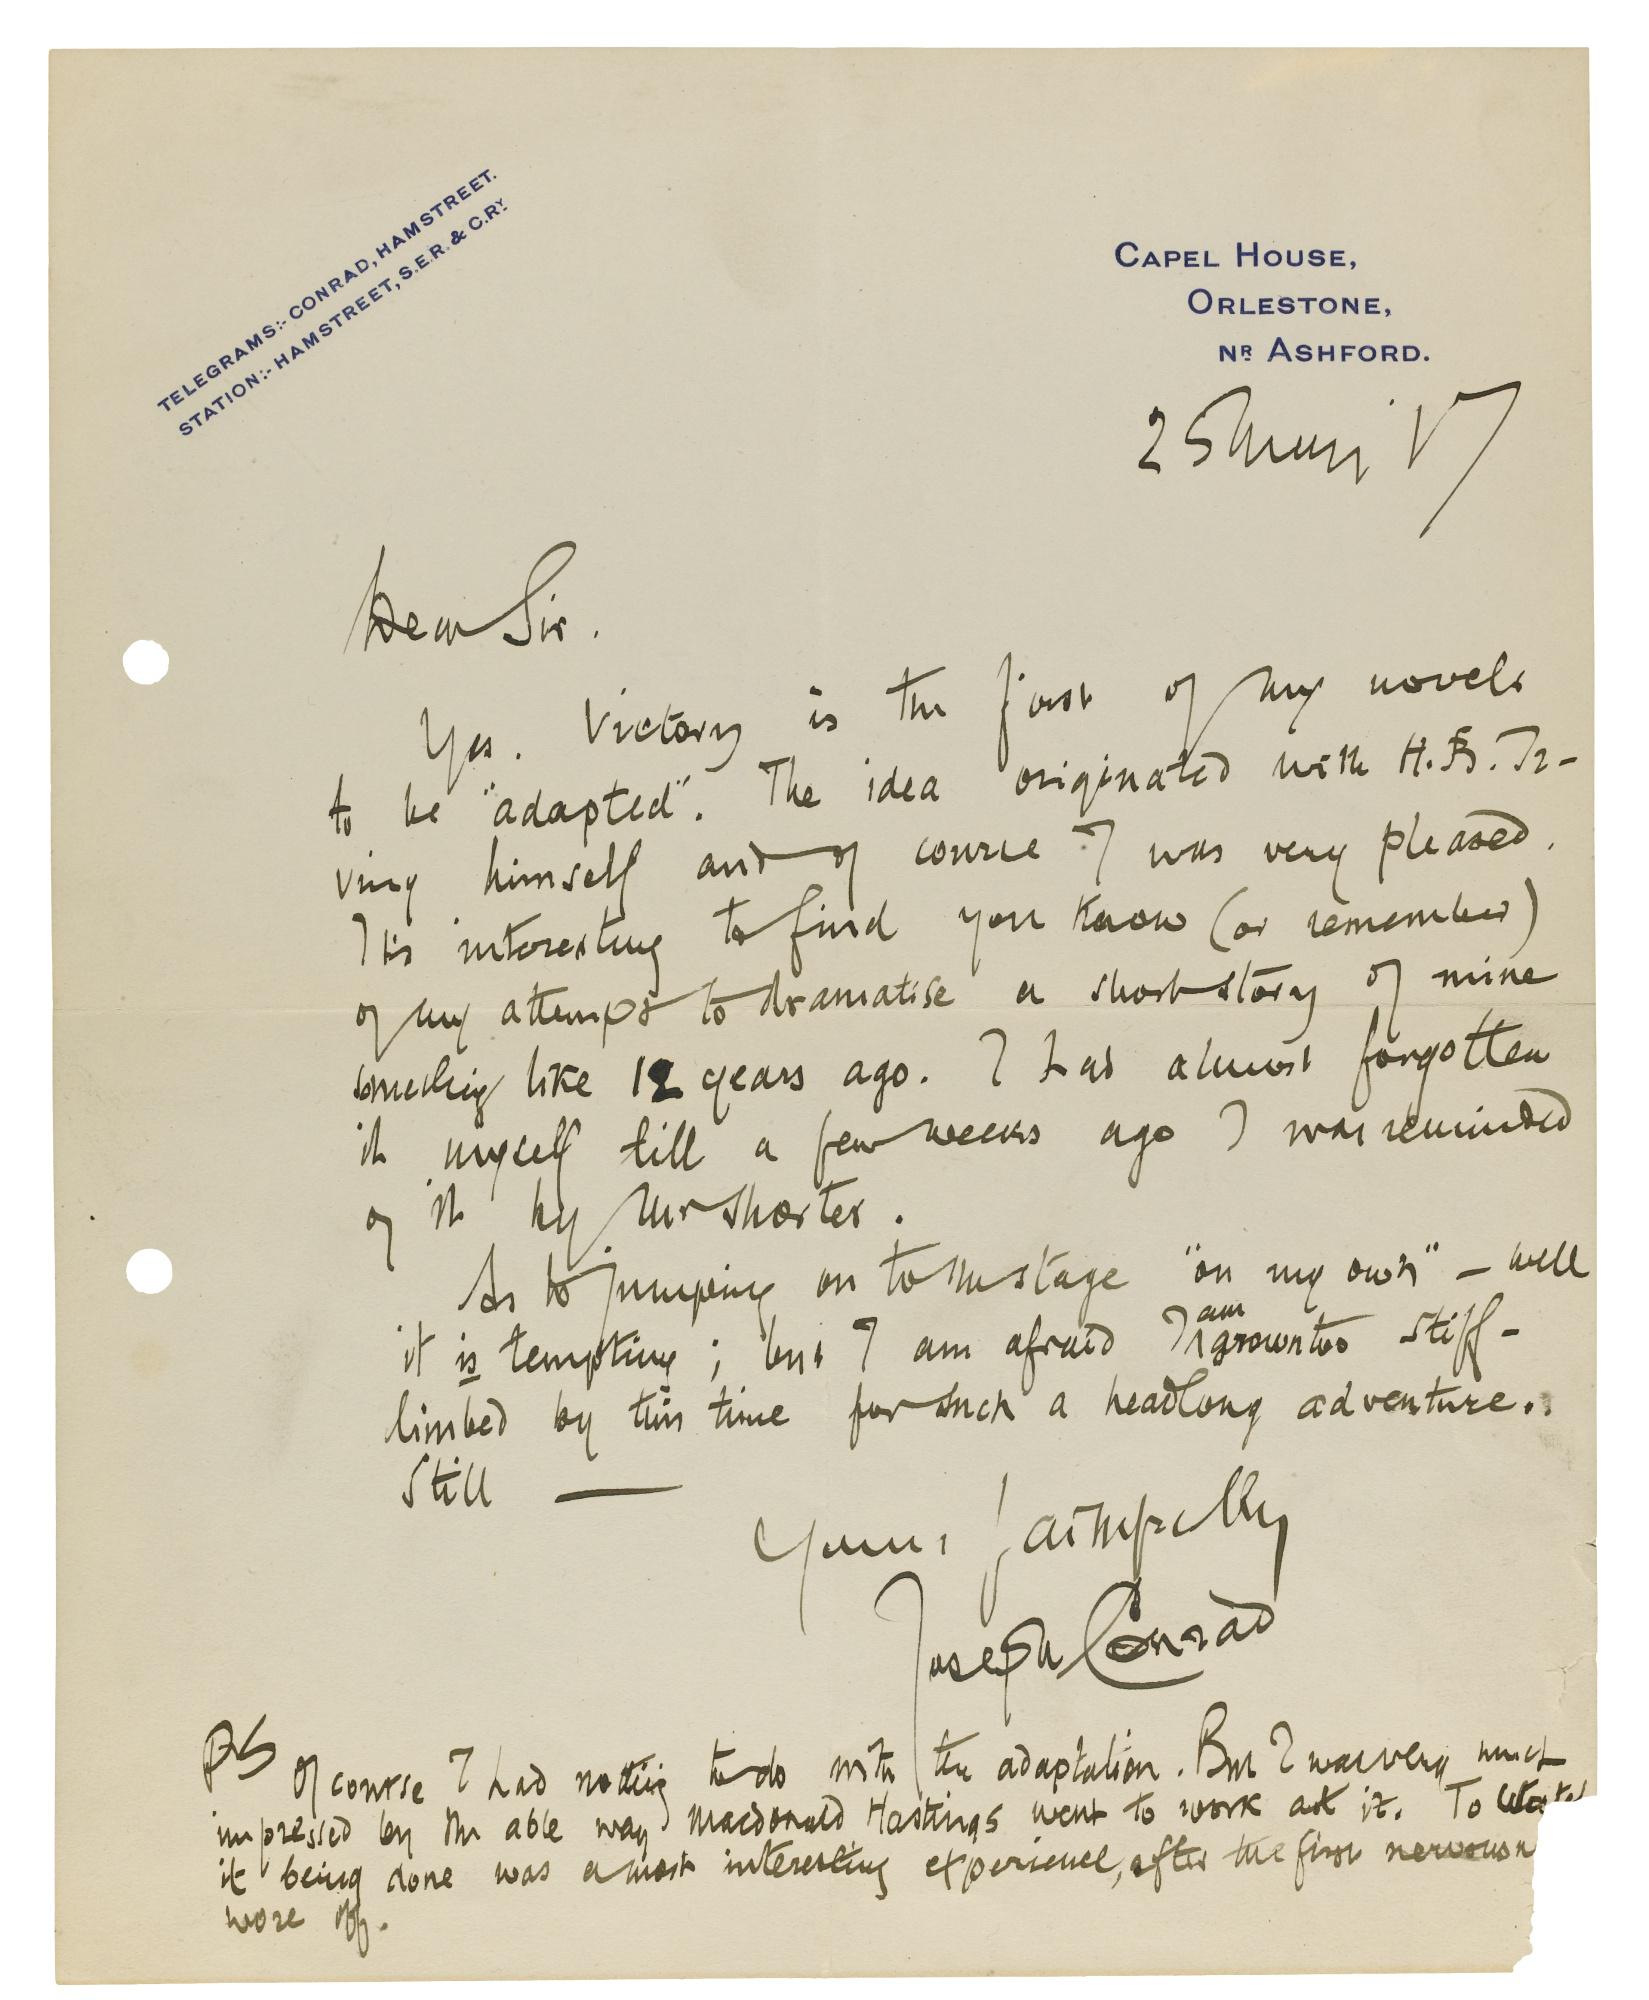 TELEGRAMS:- CONRAD, HAMSTREET.
STATION:- HAMSTREET, S.E.R. & C.RY.
CAPEL HOUSE,
ORLESTONE,
NR ASHFORD.
25 '17
Dear Sir.
Yes. Victory is the first of my novels
to be "adapted". The idea originated with H.B. Ir-
ving himself and of course I was very pleased.
It is interesting to find you know (or remember)
of my attempt to dramatise a short story of mine
something like 12 years ago. I had almost forgotten
it myself till a few weeks ago I was reminded
of it by Mr Shorter.
As to jumping on to the stage "on my own" – well
it is tempting; but I am afraid I am grown too stiff-
limbed by this time for such a headlong adventure..
Still —
Yours faithfully
Joseph Conrad
PS Of course I had nothing to do with the adaptation. But I was very much
impressed by the able way Macdonald Hastings went to work at it. To
it being done was a most interesting experience, after the first
wore off.